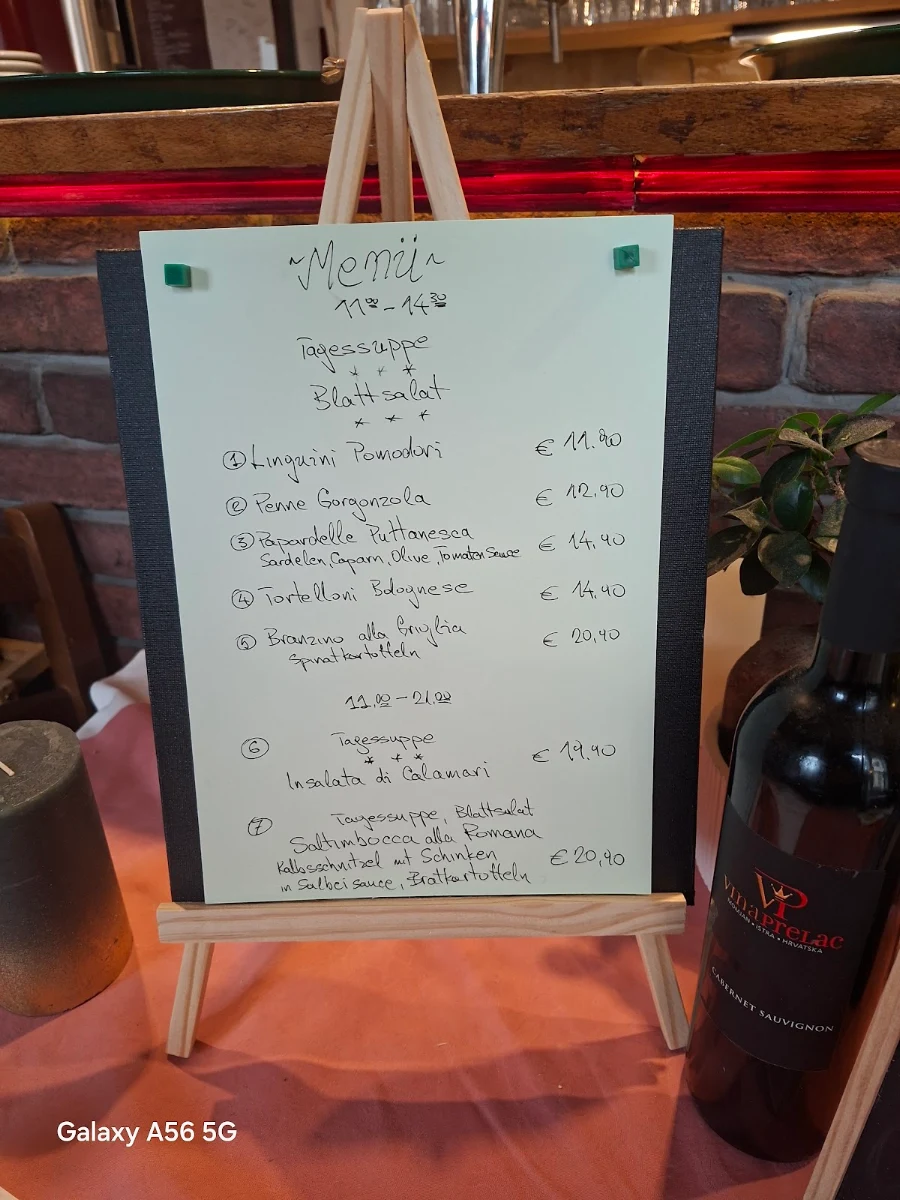 ~Menü~
11⁰⁰-14³⁰
Tagessuppe
* * *
Blattsalat
* * *
① Linguini Pomodori € 11.90
② Penne Gorgonzola € 12,90
③ Papardelle Puttanesca € 14,90
Sardelen, Caparn, Olive, Tomaten Sauce
④ Tortelloni Bolognese € 14,90
⑤ Branzino alla Griglia € 20,90
Spinatkartoffeln
11.⁰⁰-21.⁰⁰
⑥ Tagessuppe
* * *
Insalata di Calamari € 19,90
⑦ Tagessuppe, Blattsalat
Saltimbocca alla Romana
Kalbsschnitzel mit Schinken € 20,90
in Salbei sauce, Bratkartoffeln
VP
vina prelac
MOMJAN • ISTRA • HRVATSKA
CABERNET SAUVIGNON
Galaxy A56 5G